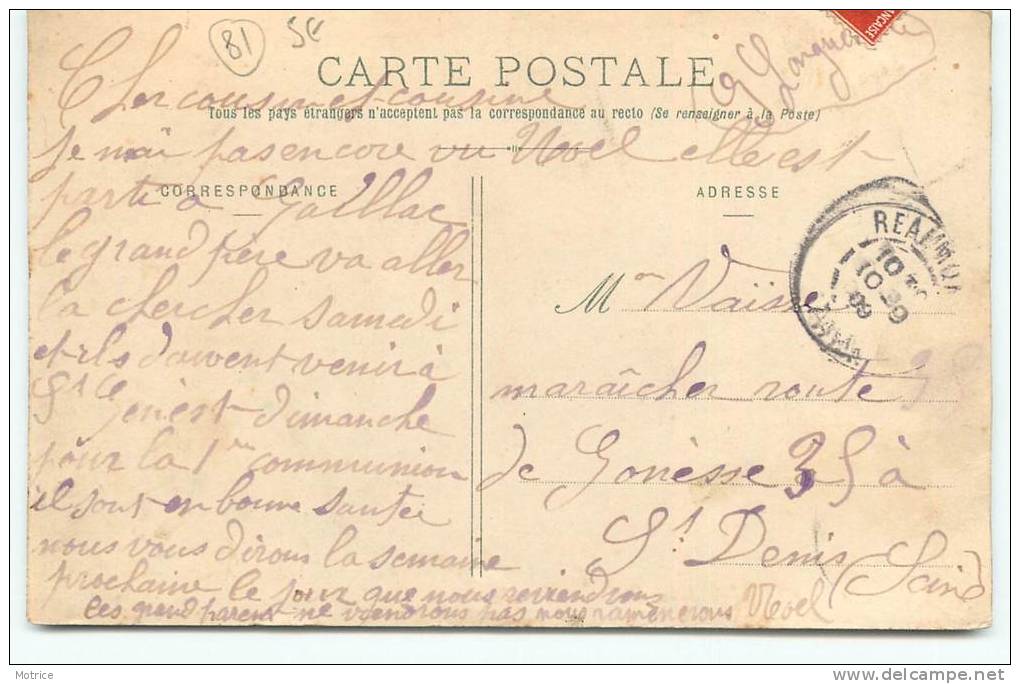 81
CARTE POSTALE
Tous les pays étrangers n'acceptent pas la correspondance au recto (Se renseigner à la Poste)
Cher cousin et cousine
je n'ai pas encore vu Noel elle est
CORRESPONDANCE
parti a Gaillac
le grand père va aller
la chercher samedi
et ils doivent venir à
St Genest dimanche
pour la 1ère communion
il sont en bonne santée
nous vous dirons la semaine
prochaine le jour que nous reviendrons
les grand parent ne viendrons pas nous ramenerons Noel
ADRESSE
Mr Vaisse
maraîcher route
de Gonesse 35 à
St Denis (Seine)
REALMONT
10
10
09
Motrice
www.delcampe.net